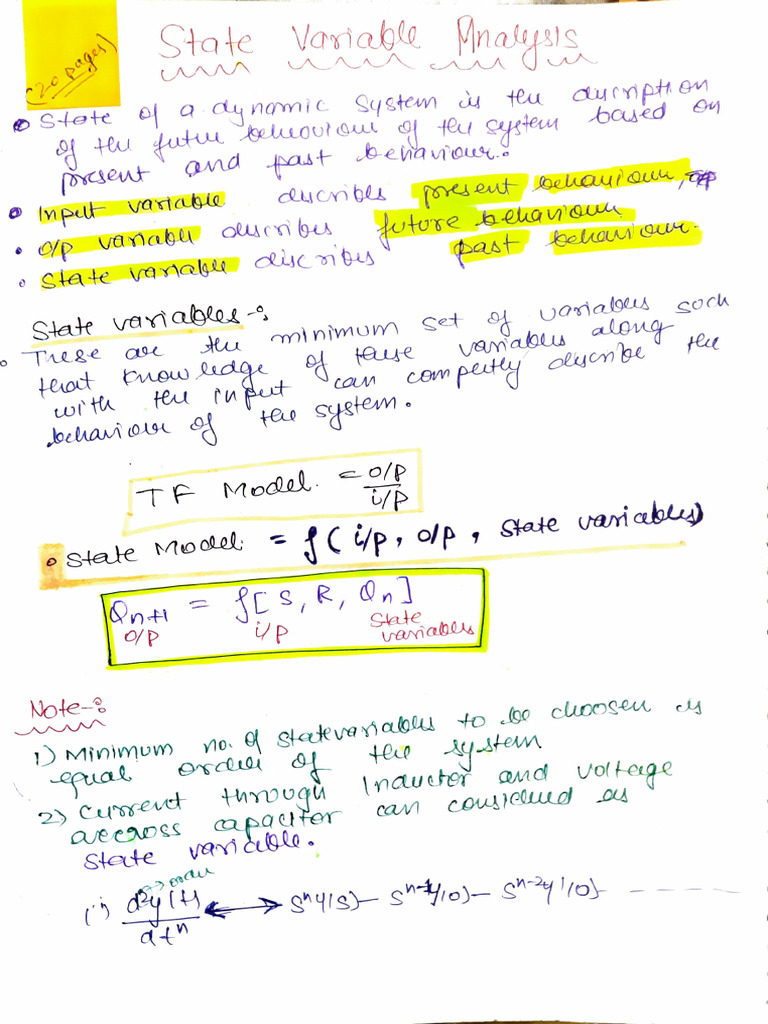 (20 pages)
State Variable Analysis
State of a dynamic system is the discription
of the future behaviour of the system based on
present and past behaviour.
Input variable describles present behaviour,
• O/p variable describes future behaviour
• State variable discribes past behaviour.
State variables -:
These are the minimum set of variables such
that knowledge of these variables along
with the input can compeltly describe the
behaviour of the system.
TF Model. = o/p
i/p
• State Model = f( i/p, o/p, State variables)
Qn+1 = f[ S, R, Qn ]
O/p i/p State
variables
Note-:
1) Minimum no. of statevariables to be choosen is
equal order of the system
2) Current through Inductor and voltage
accross capaciter can considered as
State variable.
→ order
(i) d²y(t) ↔ sⁿy(s) - sⁿ⁻¹y(0) - sⁿ⁻²y'(0) - - - - -
dtⁿ